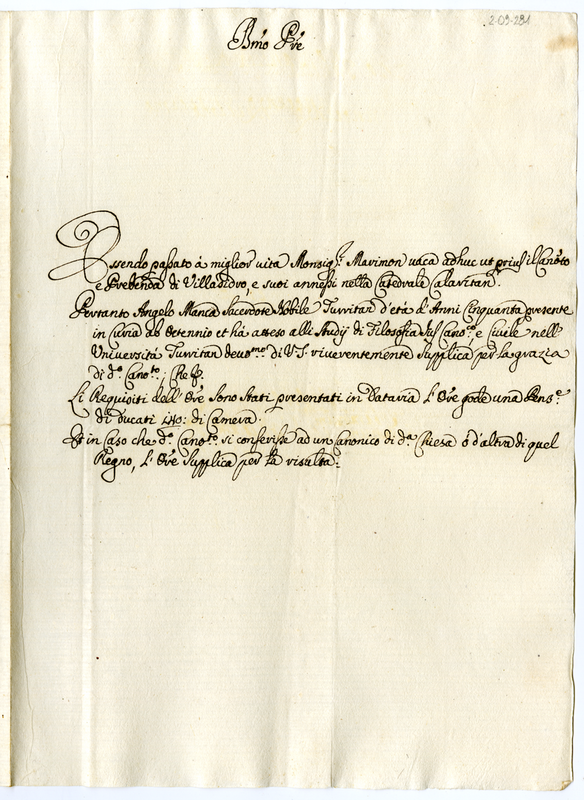 2-09-281
Bmo Pre
Essendo passato à miglior vita Monsigr. Marimon vaca adhuc ut prius il Canoto
e Prebenda di Villacidro, e suoi annessi nella Catedrale Calaritan.
Pertanto Angelo Manca Sacerdote Nobile Turritan d'età d'Anni Cinquanta presente
in Curia ab octennio et hà atteso alli Studij di Filosofia Jus Canoco, e Civile nell'
Università Turritan devotmo. di V.S. riverentemente Supplica per la grazia
di do. Canoto.; Che
Li Requisiti dell' Ore Sono Stati presentati in Dataria L' Ore gode una Pense.
di ducati di Camera.
Et in Caso che do. Canoto. si conferisse ad un Canonico di da. Chiesa ò d'altra di quel
Regno, L' Ore Supplica per la risulta.